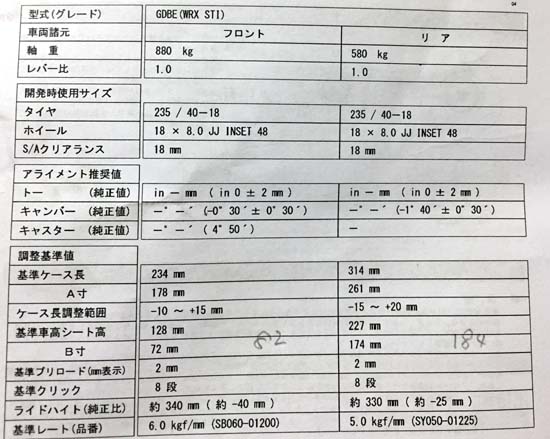 型式(グレード) GDBE(WRX STI)
車両諸元 フロント リア
軸 重 880 kg 580 kg
レバー比 1.0 1.0
開発時使用サイズ
タイヤ 235 / 40-18 235 / 40-18
ホイール 18 × 8.0 JJ INSET 48 18 × 8.0 JJ INSET 48
S/Aクリアランス 18 mm 18 mm
アライメント推奨値
トー (純正値) in - mm ( in 0 ± 2 mm ) in - mm ( in 0 ± 2 mm )
キャンバー (純正値) -° -´ (-0° 30´± 0° 30´) -° -´ (-1° 40´± 0° 30´)
キャスター (純正値) -° -´ ( 4° 50´) -
調整基準値
基準ケース長 234 mm 314 mm
A寸 178 mm 261 mm
ケース長調整範囲 -10 ~ +15 mm -15 ~ +20 mm
基準車高シート高 128 mm 227 mm
B寸 72 mm 82 174 mm 184
基準プリロード(mm表示) 2 mm 2 mm
基準クリック 8 段 8 段
ライドハイト(純正比) 約 340 mm ( 約 -40 mm ) 約 330 mm ( 約 -25 mm )
基準レート(品番) 6.0 kgf/mm (SB060-01200) 5.0 kgf/mm (SY050-01225)